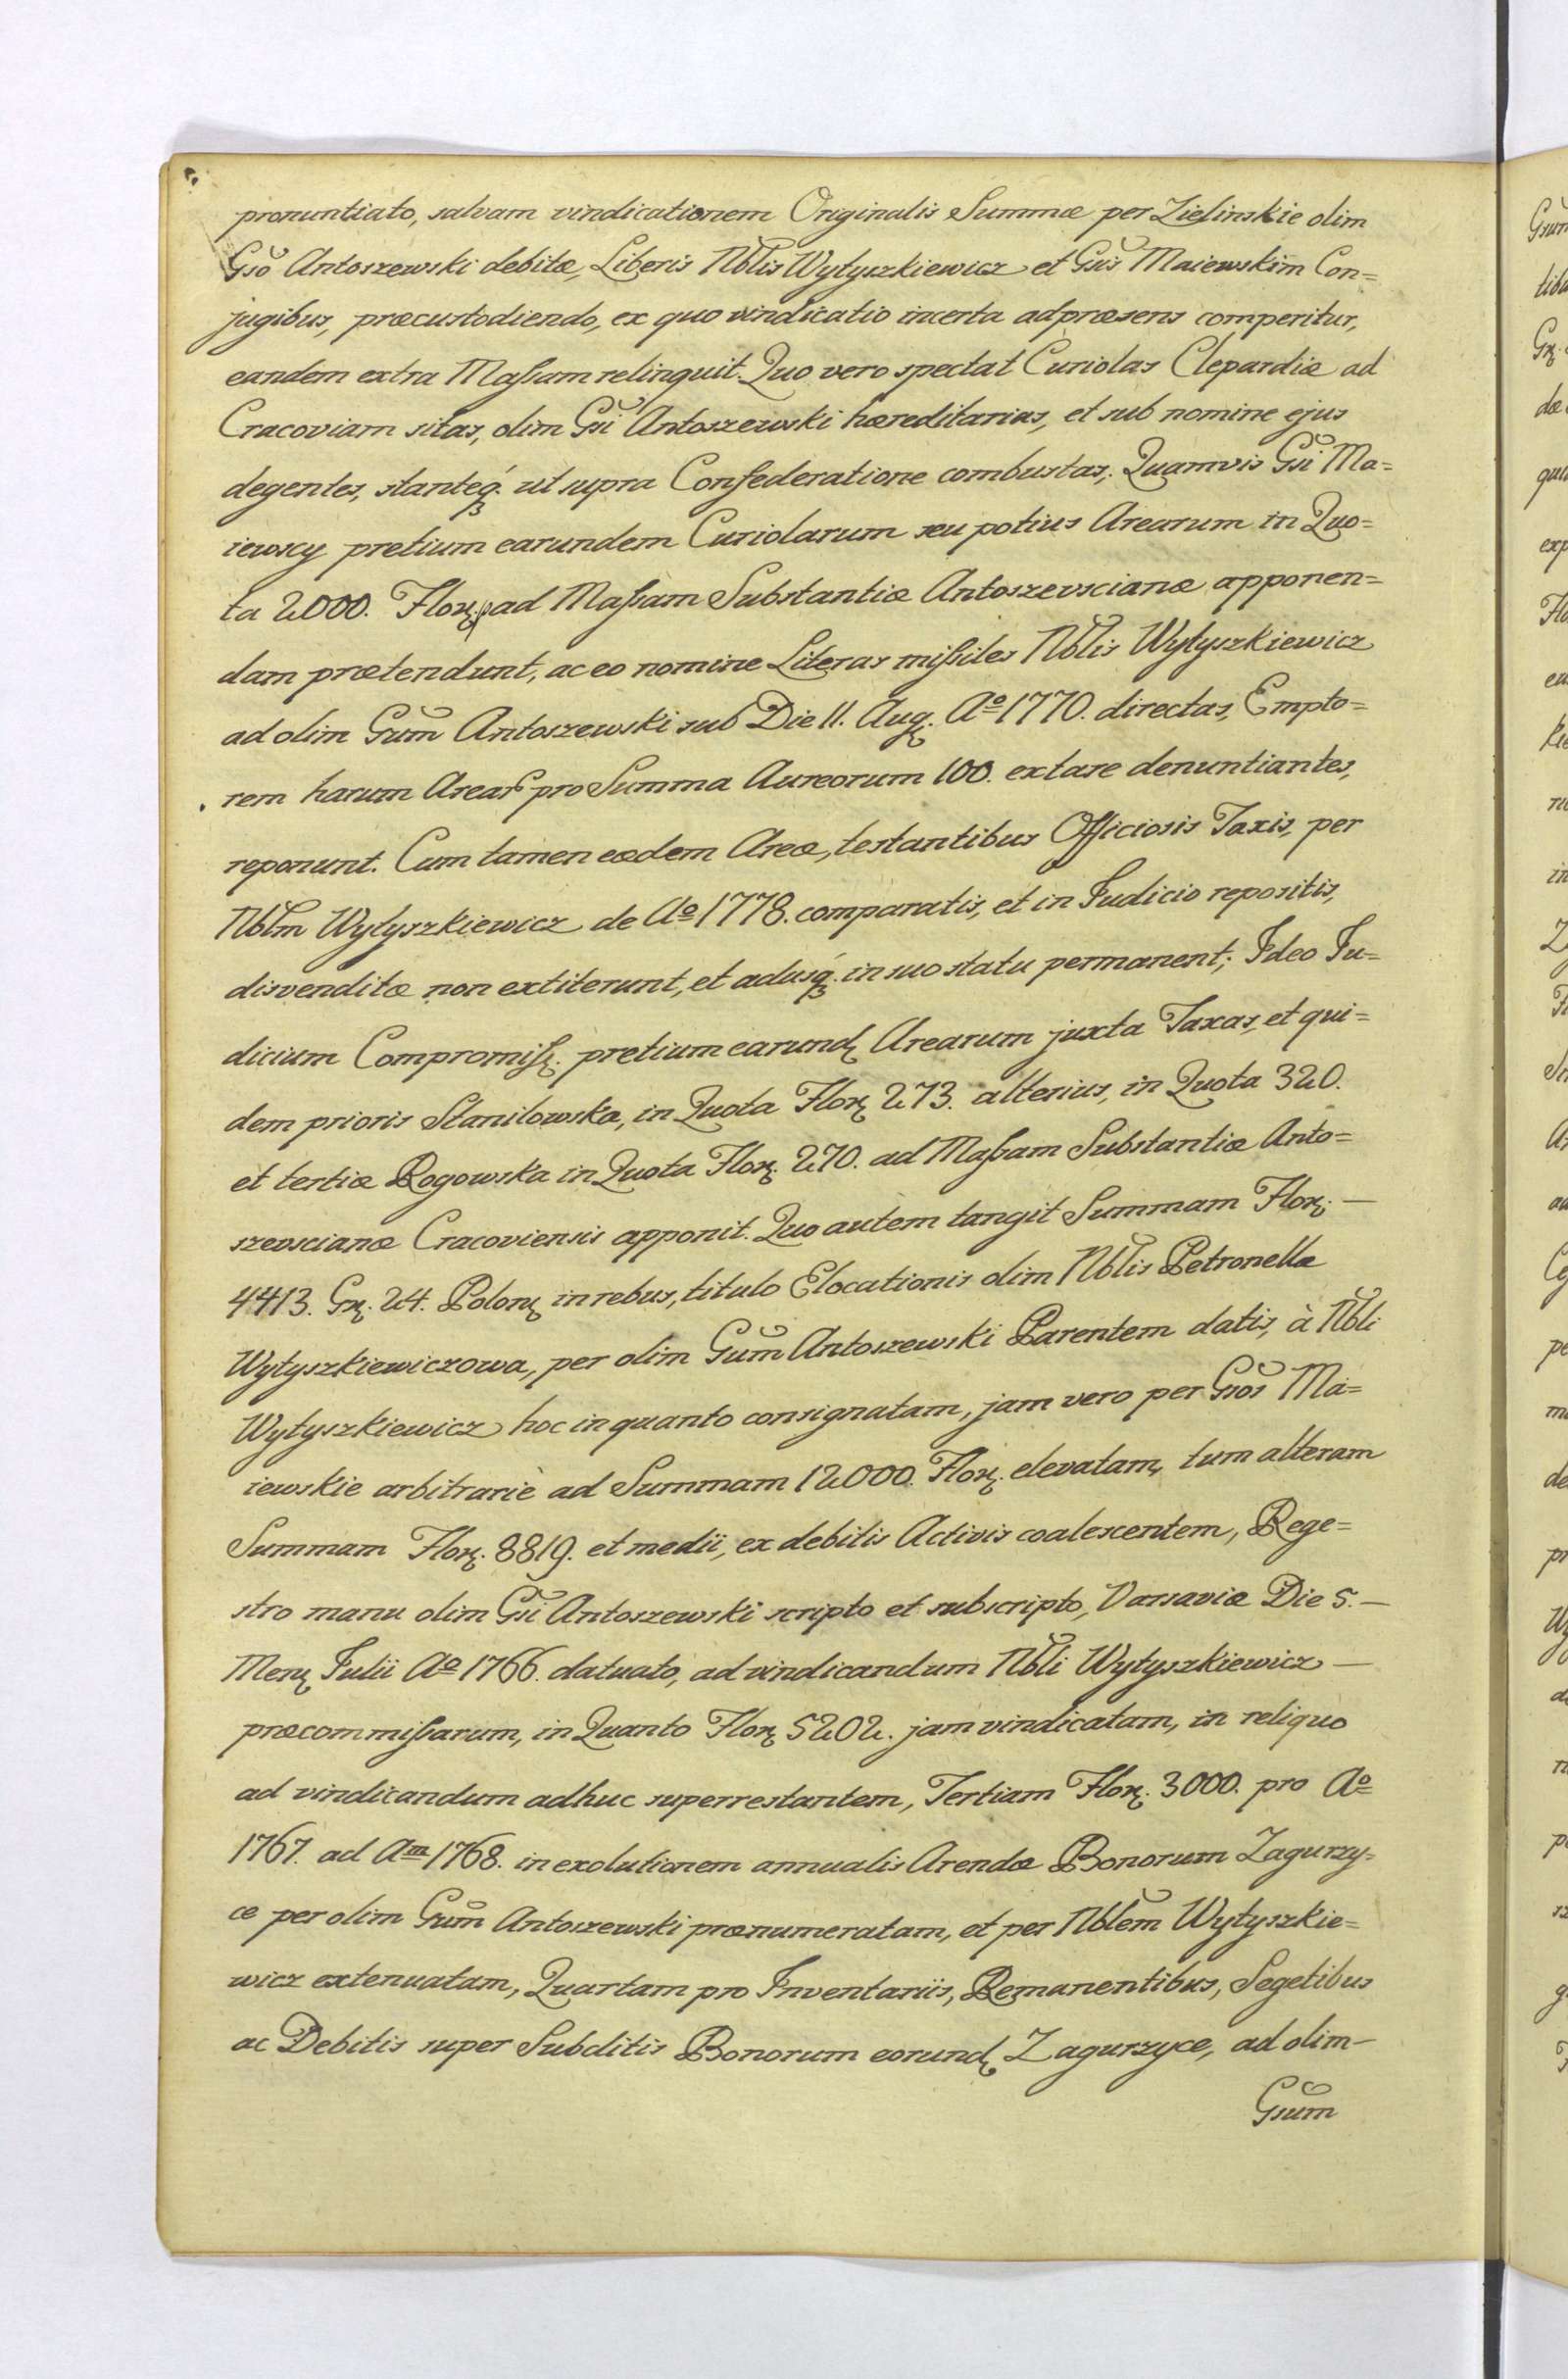 pronuntiato, salvam vindicationem Originalis Summæ per Zielinskie olim
Gso Antoszewski debitæ, Liberis Nblis Wytyszkiewicz et Gsis Maiewskim Con=
jugibus, præcustodiendo, ex quo vindicatio incerta adpræsens comperitur,
eandem extra Maſsam relinquit. Quo vero spectat Curiolas Clepardiæ ad
Cracoviam sitas, olim Gsi Antoszewski hæreditarias, et sub nomine ejus
degentes, stanteq́ꝫ ut supra Confederatione combustas, Quamvis Gsi Ma=
iewscy pretium earundem Curiolarum seu potius Arearum in Quo=
ta 2000. Florꝝ. ad Maſsam Substantiæ Antoszevscianæ apponen=
dam prætendunt, ac eo nomine Literas miſsiles Nblis Wytyszkiewicz
ad olim Gsum Antoszewski sub Die 11. Augꝫ. Aº 1770. directas, Empto=
rem harum Areaꝝ pro Summa Aureorum 100. extare denuntiantes,
reponunt. Cum tamen eædem Areæ, testantibus Officiosis Taxis, per
Nblm Wytyszkiewicz de Aº 1778. comparatis, et in Judicio repositis,
disvenditæ non extiterunt, et adusq́ꝫ in suo statu permanent; Ideo Ju=
dicium Compromiſsꝫ. pretium earundꝫ Arearum juxta Taxas, et qui=
dem prioris Stanilowska, in Quota Florꝝ 273. alterius, in Quota 320.
et tertiæ Rogowska in Quota Florꝝ. 270. ad Maſsam Substantiæ Anto=
szevscianæ Cracoviensis apponit. Quo autem tangit Summam Florꝝ. —
4413. Grꝝ. 24. Polonꝝ in rebus, titulo Elocationis olim Nblis Petronellæ
Wytyszkiewiczowa, per olim Gsum Antoszewski Parentem datis, à Nbli
Wytyszkiewicz hoc in quanto consignatam, jam vero per Gsos Ma=
iewskie arbitrariè ad Summam 12000. Florꝝ. elevatam, tum alteram
Summam Florꝝ. 8819. et medii, ex debitis Activis coalescentem, Rege=
stro manu olim Gsi Antoszewski scripto et subscripto, Varsaviæ Die 5. —
Mensꝫ Julii Aº 1766. datuato, ad vindicandum Nbli Wytyszkiewicz —
præcommiſsarum, in Quanto Florꝝ 5202. jam vindicatam, in reliquo
ad vindicandum adhuc superrestantem, Tertiam Florꝝ. 3000. pro Aº
1767. ad Am 1768. in exolutionem annualis Arendæ Bonorum Zagurzy=
ce per olim Gsum Antoszewski prænumeratam, et per Nblem Wytyszkie=
wicz extenuatam, Quartam pro Inventariis, Remanentibus, Segetibus
ac Debitis super Subditis Bonorum eorundꝫ Zagurzyce, ad olim —
Gsum